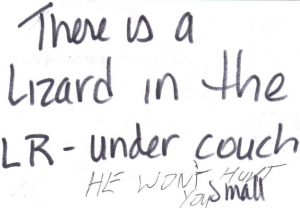 There is a
Lizard in the
LR - under couch
HE WON'T HURT
YOU
small